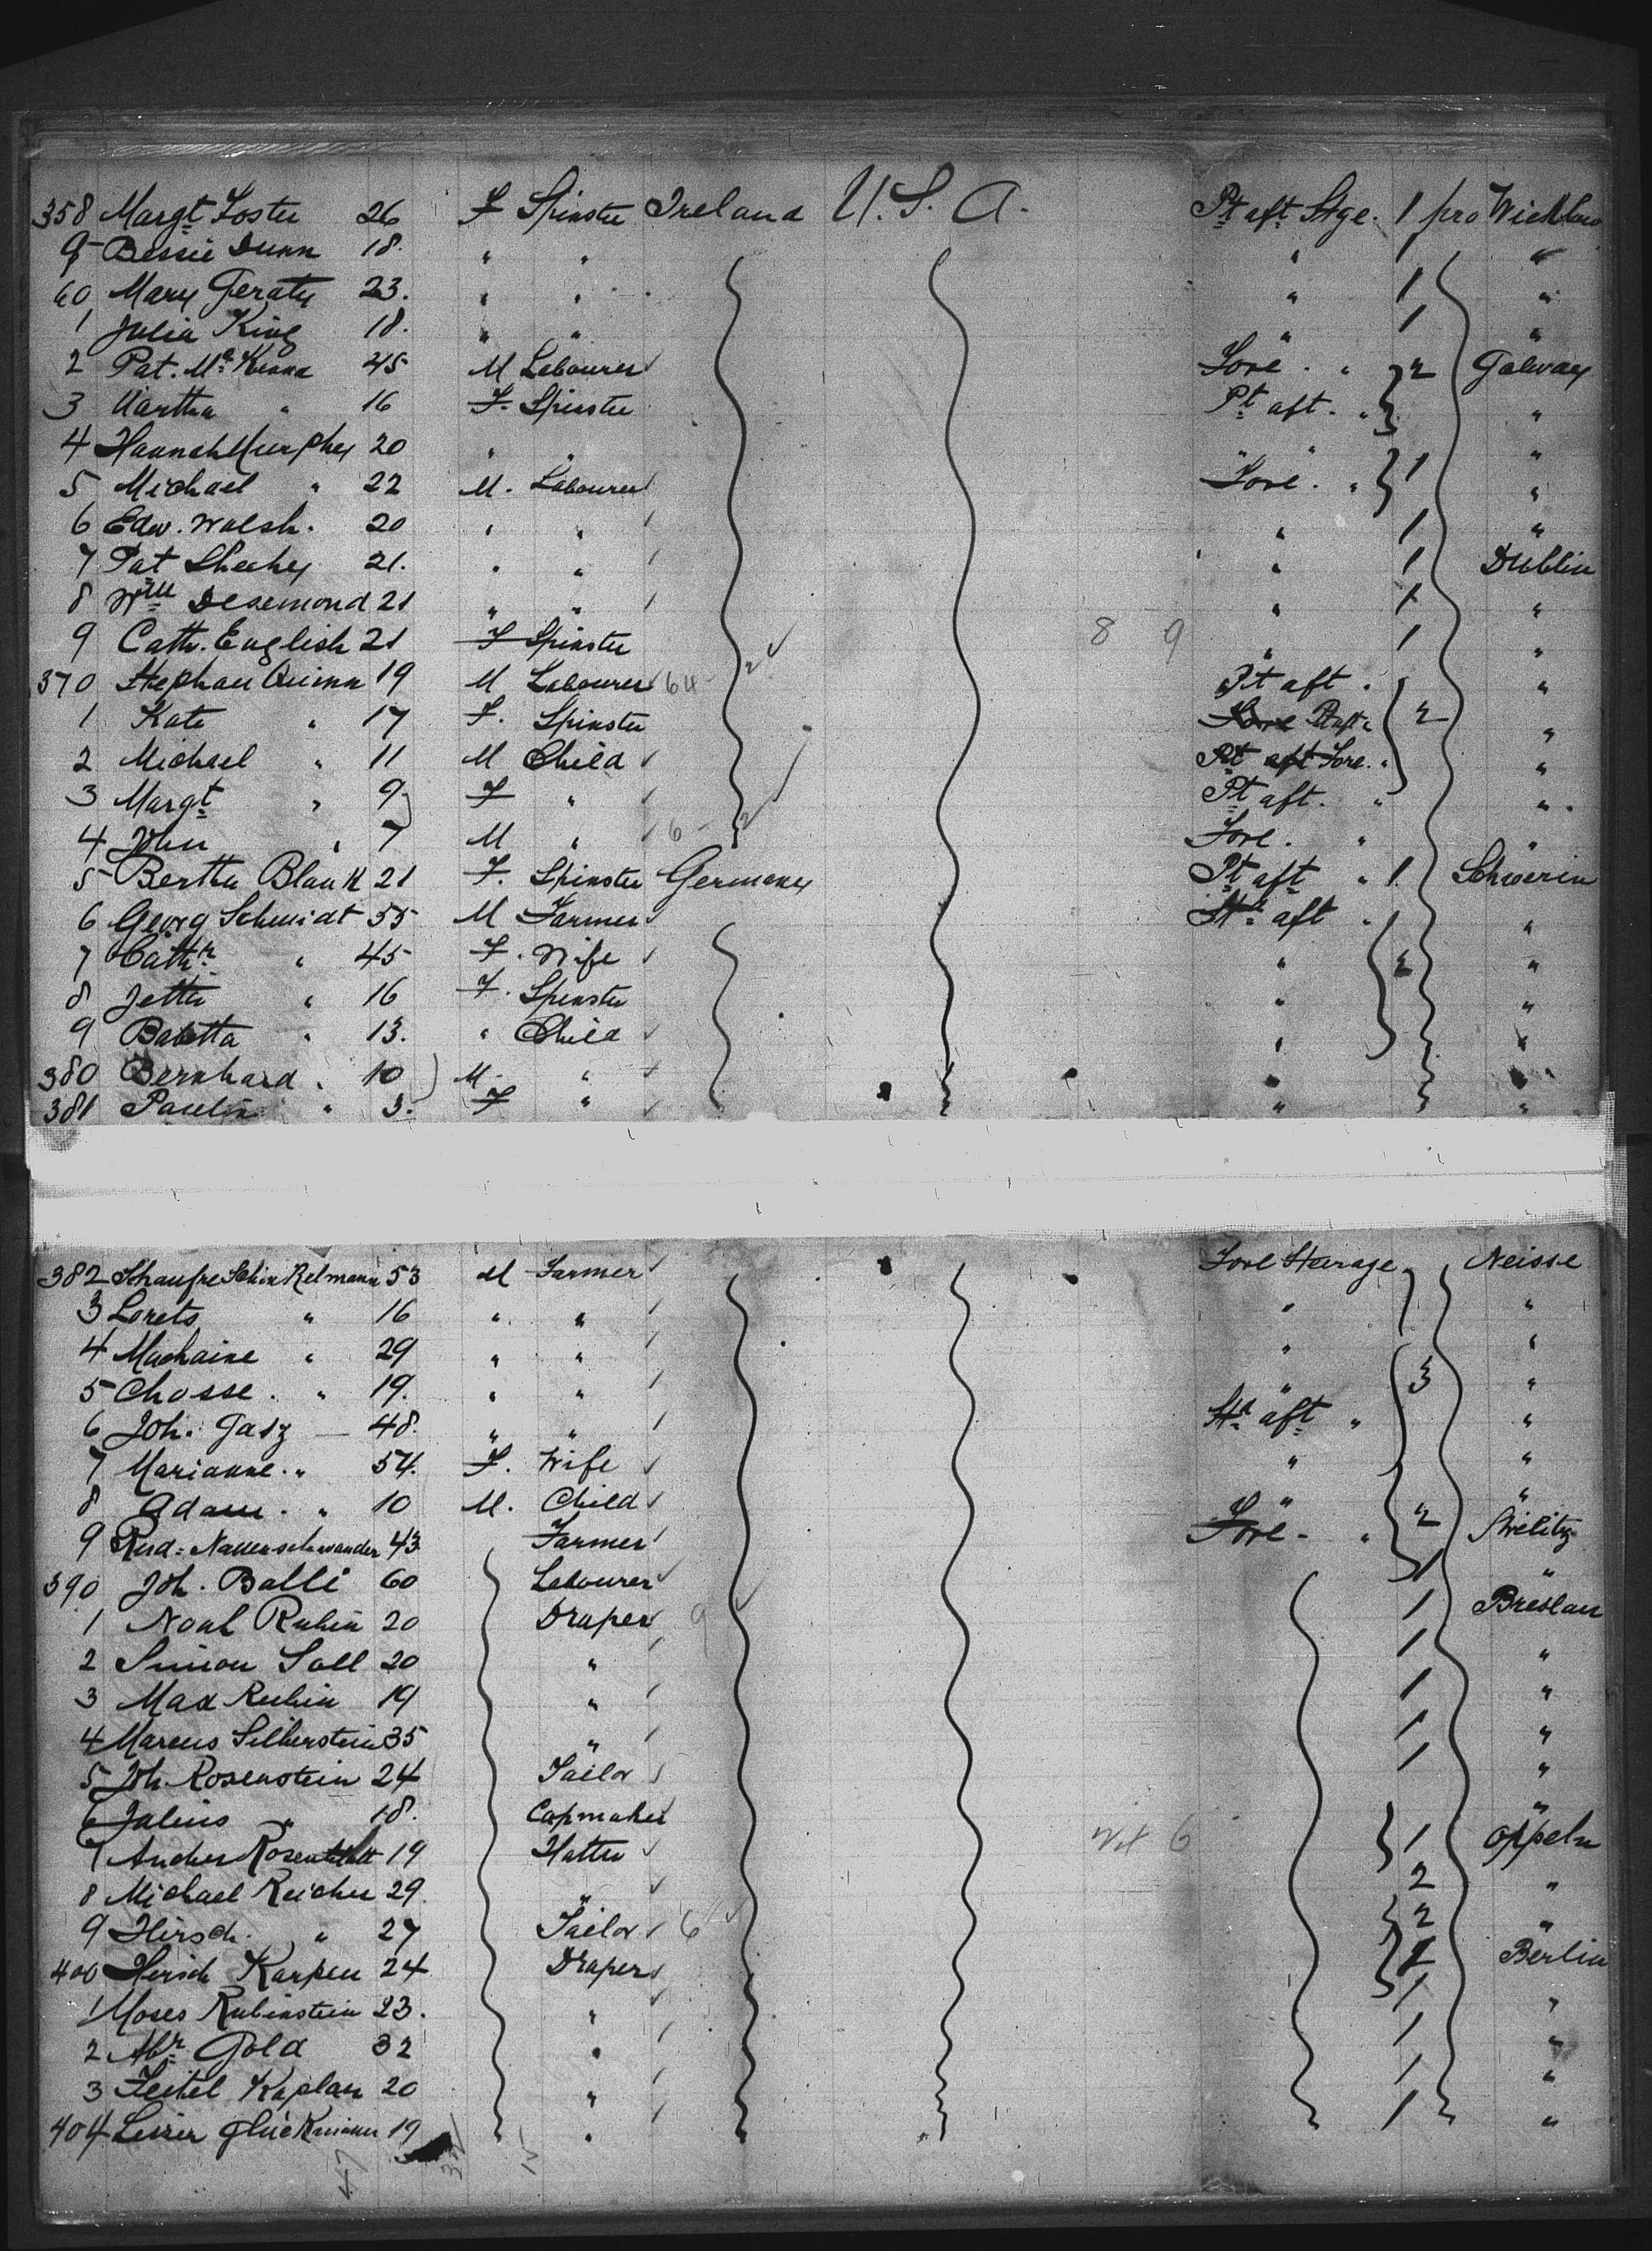 358 Margt Foster 26 F Spinster Ireland U.S.A. Pt aft Stge. 1 pro Wicklow
9 Bessie Dunn 18. " " " 1 "
60 Mary Geraty 23. " " " 1 "
1 Julia King 18. " " " 1 "
2 Pat. McKenna 45 M Labourer Fore. " 2 Galway
3 Martha " 16 F. Spinster Pt aft. " "
4 Hannah Murphy 20 " " " " "
5 Michael " 22 M. Labourer Fore. " 1 "
6 Edw. Walsh. 20 " " " 1 "
7 Pat Sheehy 21. " " " 1 Dublin
8 Wm Desemond 21 " " " 1 "
9 Cath. English 21 F Spinster 8 9 " 1 "
370 Stephan Quinn 19 M Labourer 64 Pt aft. "
1 Kate " 17 F. Spinster Pt aft " 2 "
2 Michael " 11 M Child Fore. " "
3 Margt " 9 F " Pt aft. " "
4 John " 7 M " 6 Fore. " "
5 Bertha Blank 21 F. Spinster Germany Pt aft " 1 Schwerin
6 Georg Schmidt 55 M Farmer aft " "
7 Cathr " 45 F. Wife " 2 "
8 Jetta " 16 F. Spinster " "
9 Babetta " 13. " Child " "
380 Bernhard " 10 M. " " "
381 Paulin " 3. F " " "
382 53 M Farmer Fore Steerage Neisse
3 Lorets " 16 " " " "
4 Machaine " 29 " " " "
5 Chosse. " 19. " " " 3 "
6 Joh. Gasz 48. " " aft " "
7 Marianne. " 54. F. Wife " "
8 Adam. " 10 M. Child " "
9 43 Farmer Fore. " 2 Strelitz
390 Joh. Balli 60 Labourer 1 "
1 Noah Rubin 20 Draper 9 1 Breslau
2 Simon Sall 20 " 1 "
3 Max Rubin 19 " 1 "
4 Marcus Silberstein 35 " 1 "
5 Joh. Rosenstein 24 Tailor 1 "
6 Julius " 18. Capmaker "
7 19 Hatter 6 1 Oppeln
8 Michael Reicher 29. " 2 "
9 Hirsch. " 27 Tailor 6 2 "
400 Hirsch Karpen 24 Draper Berlin
1 Moses Rubinstein 23. " 1 "
2 Abr Gold 32 " 1 "
3 Kaplan 20 " 1 "
404 Glückmann 19 " 1 "